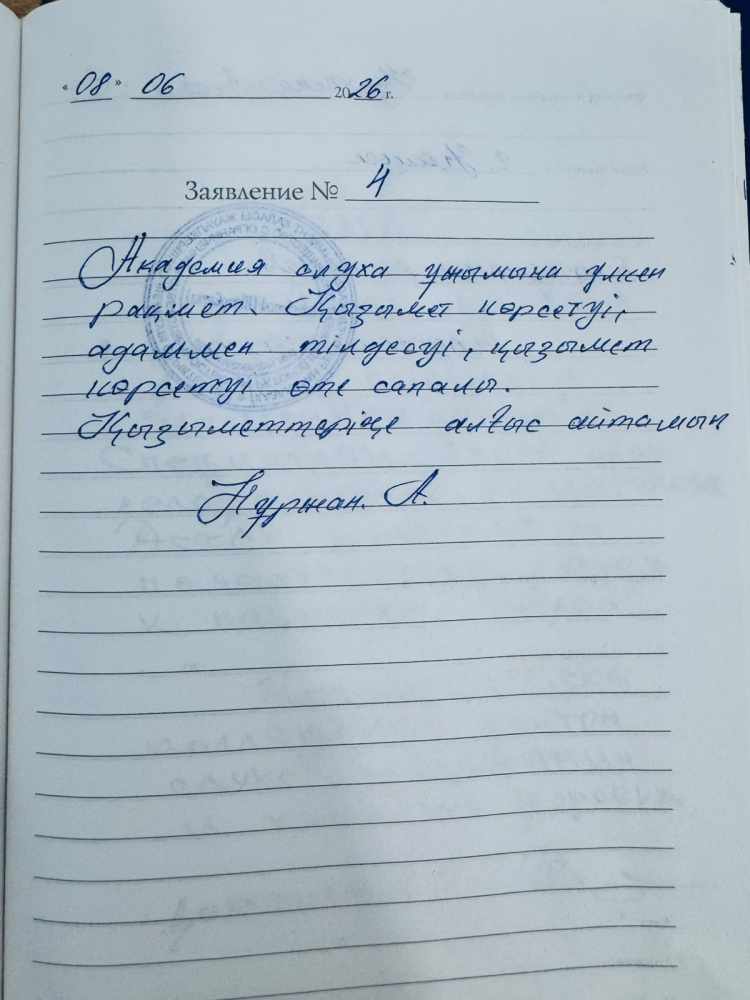 « 08 » 06 2026 г.
Заявление № 4
Академия слуха ұжымына үлкен
рақмет. Қызымет көрсетуі,
адаммен тілдесуі, қызымет
көрсетуі өте сапалы.
Қызыметтеріңе алғыс айтамын
Нұржан. А.